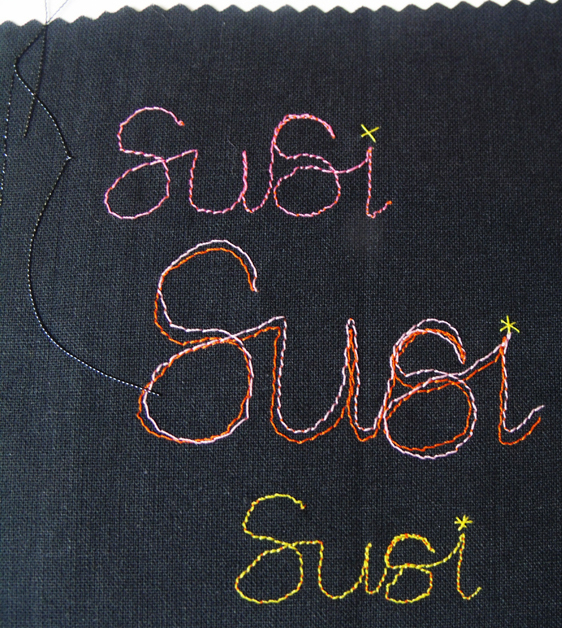 Susi
Susi
Susi